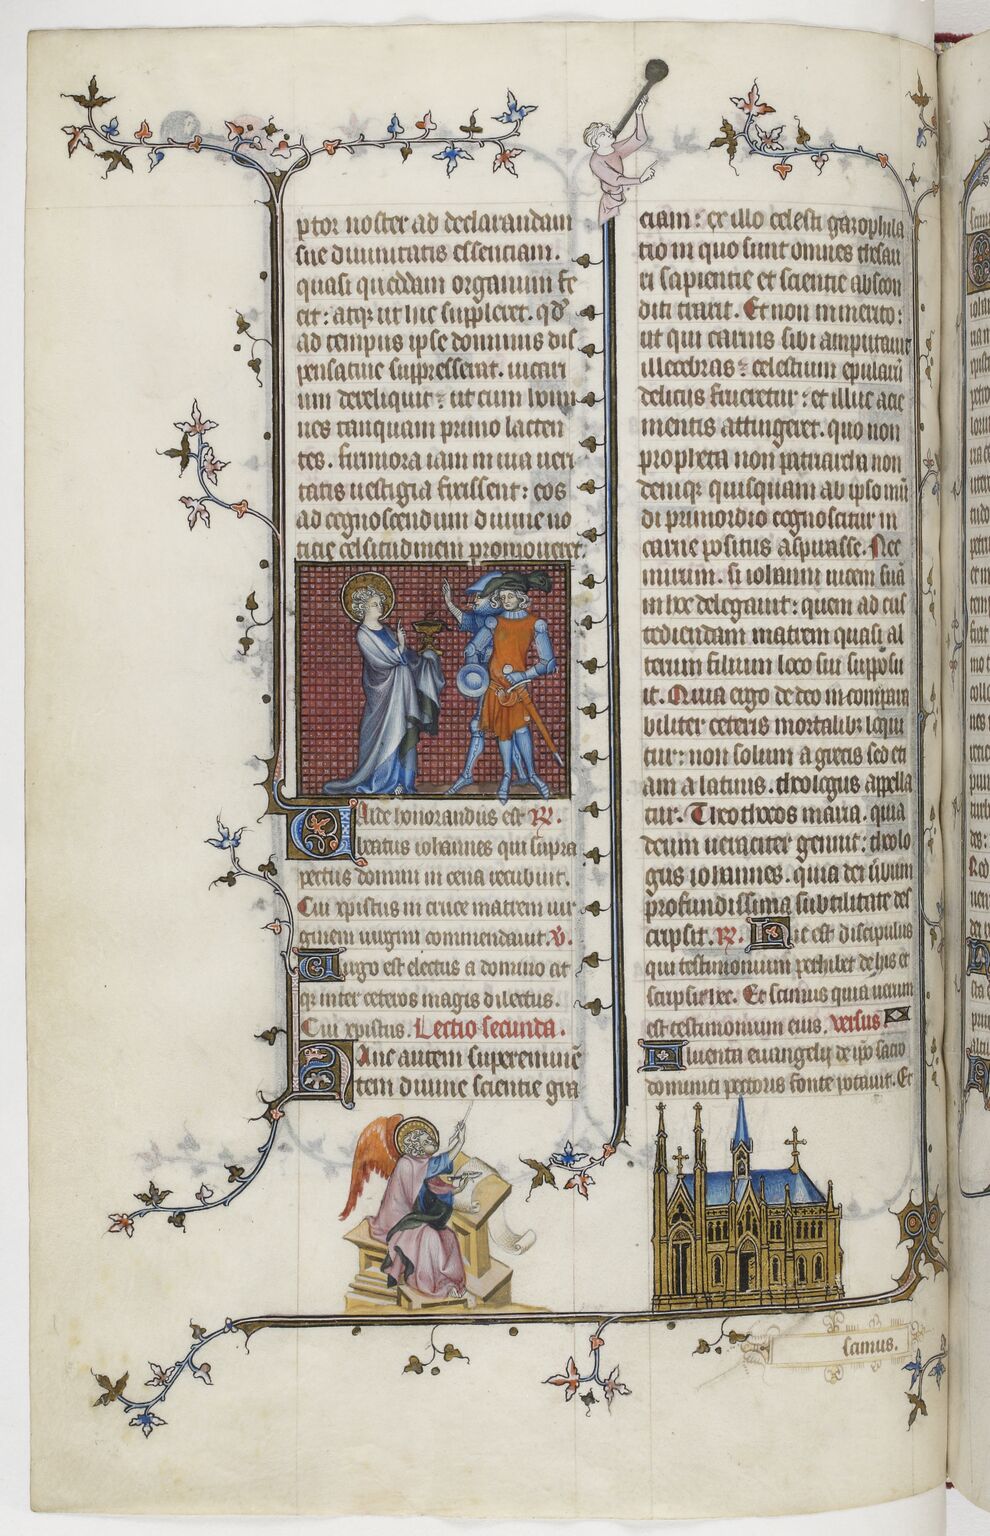 ptor noster ad declarandam
sue diuinitatis essenciam.
quasi quoddam organum fe
cit: atqz ut hic suppleret. qd
ad tempus ipse dominus dis
pensatiue suppresserat. uicari
um dereliquit: ut cum homi
nes tanquam primo lacten
tes. firmiora iam in uia ueri
tatis uestigia fixissent: eos
ad cognoscendum diuine no
ticie celsitudinem promoueret.
Valde honorandus est R.
beatus iohannes qui supra
pectus domini in cena recubuit.
Cui xpistus in cruce matrem uir
ginem uirgini commendauit. V.
Uirgo est electus a domino at
qz inter ceteros magis dilectus.
Cui xpistus. Lectio secunda.
Hanc autem supereminē
tem diuine scientie gra
ciam: ex illo celesti gazophila
cio in quo sunt omnes thesau
ri sapientie et scientie abscon
diti traxit. Et non inmerito:
ut qui carnis sibi amputauit
illecebras: celestium epularū
deliciis frueretur: et illuc acie
mentis attingeret. quo non
propheta non patriarcha non
deniqz quisquam ab ipso mū
di primordio cognoscitur in
carne positus aspirasse. Nec
mirum. si iohanni uicem suā
in hoc delegauit: quem ad cus
todiendam matrem quasi al
terum filium loco sui supposu
it. Quia ergo de deo incompara
biliter ceteris mortalibz loqui
tur: non solum a grecis sed eti
am a latinis. theologus appella
tur. Theothocos maria. quia
deum ueraciter genuit: theolo
gus iohannes. quia dei ūbum
profundissima subtilitate des
cripsit. R. Hic est discipulus
qui testimonium perhibet de his et
scripsit hec. Et scimus quia uerum
est testimonium eius. versus
Fluenta euangelij de ipo sacro
dominici pectoris fonte potauit. Et
scimus.